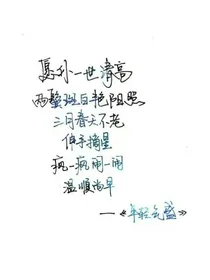 一世清高
两鬓斑白艳阳照
三月春天不老
伸手摘星
疯一疯闹一闹
温顺尚早
——《年轻气盛》